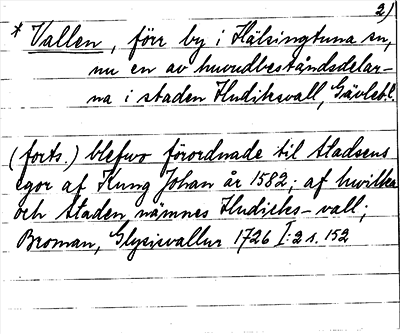 2)
* Vallen, förr by i Hälsingtuna sn,
nu en av huvudbeståndsdelar-
na i staden Hudiksvall, Gävlebl.
(forts.) blefwo förordnade til Stadsens
egor af Kung Johan år 1582; af hwilka
och Staden nämnes Hudicks-vall;
Broman, Glysisvallur 1726 I:2 s. 152